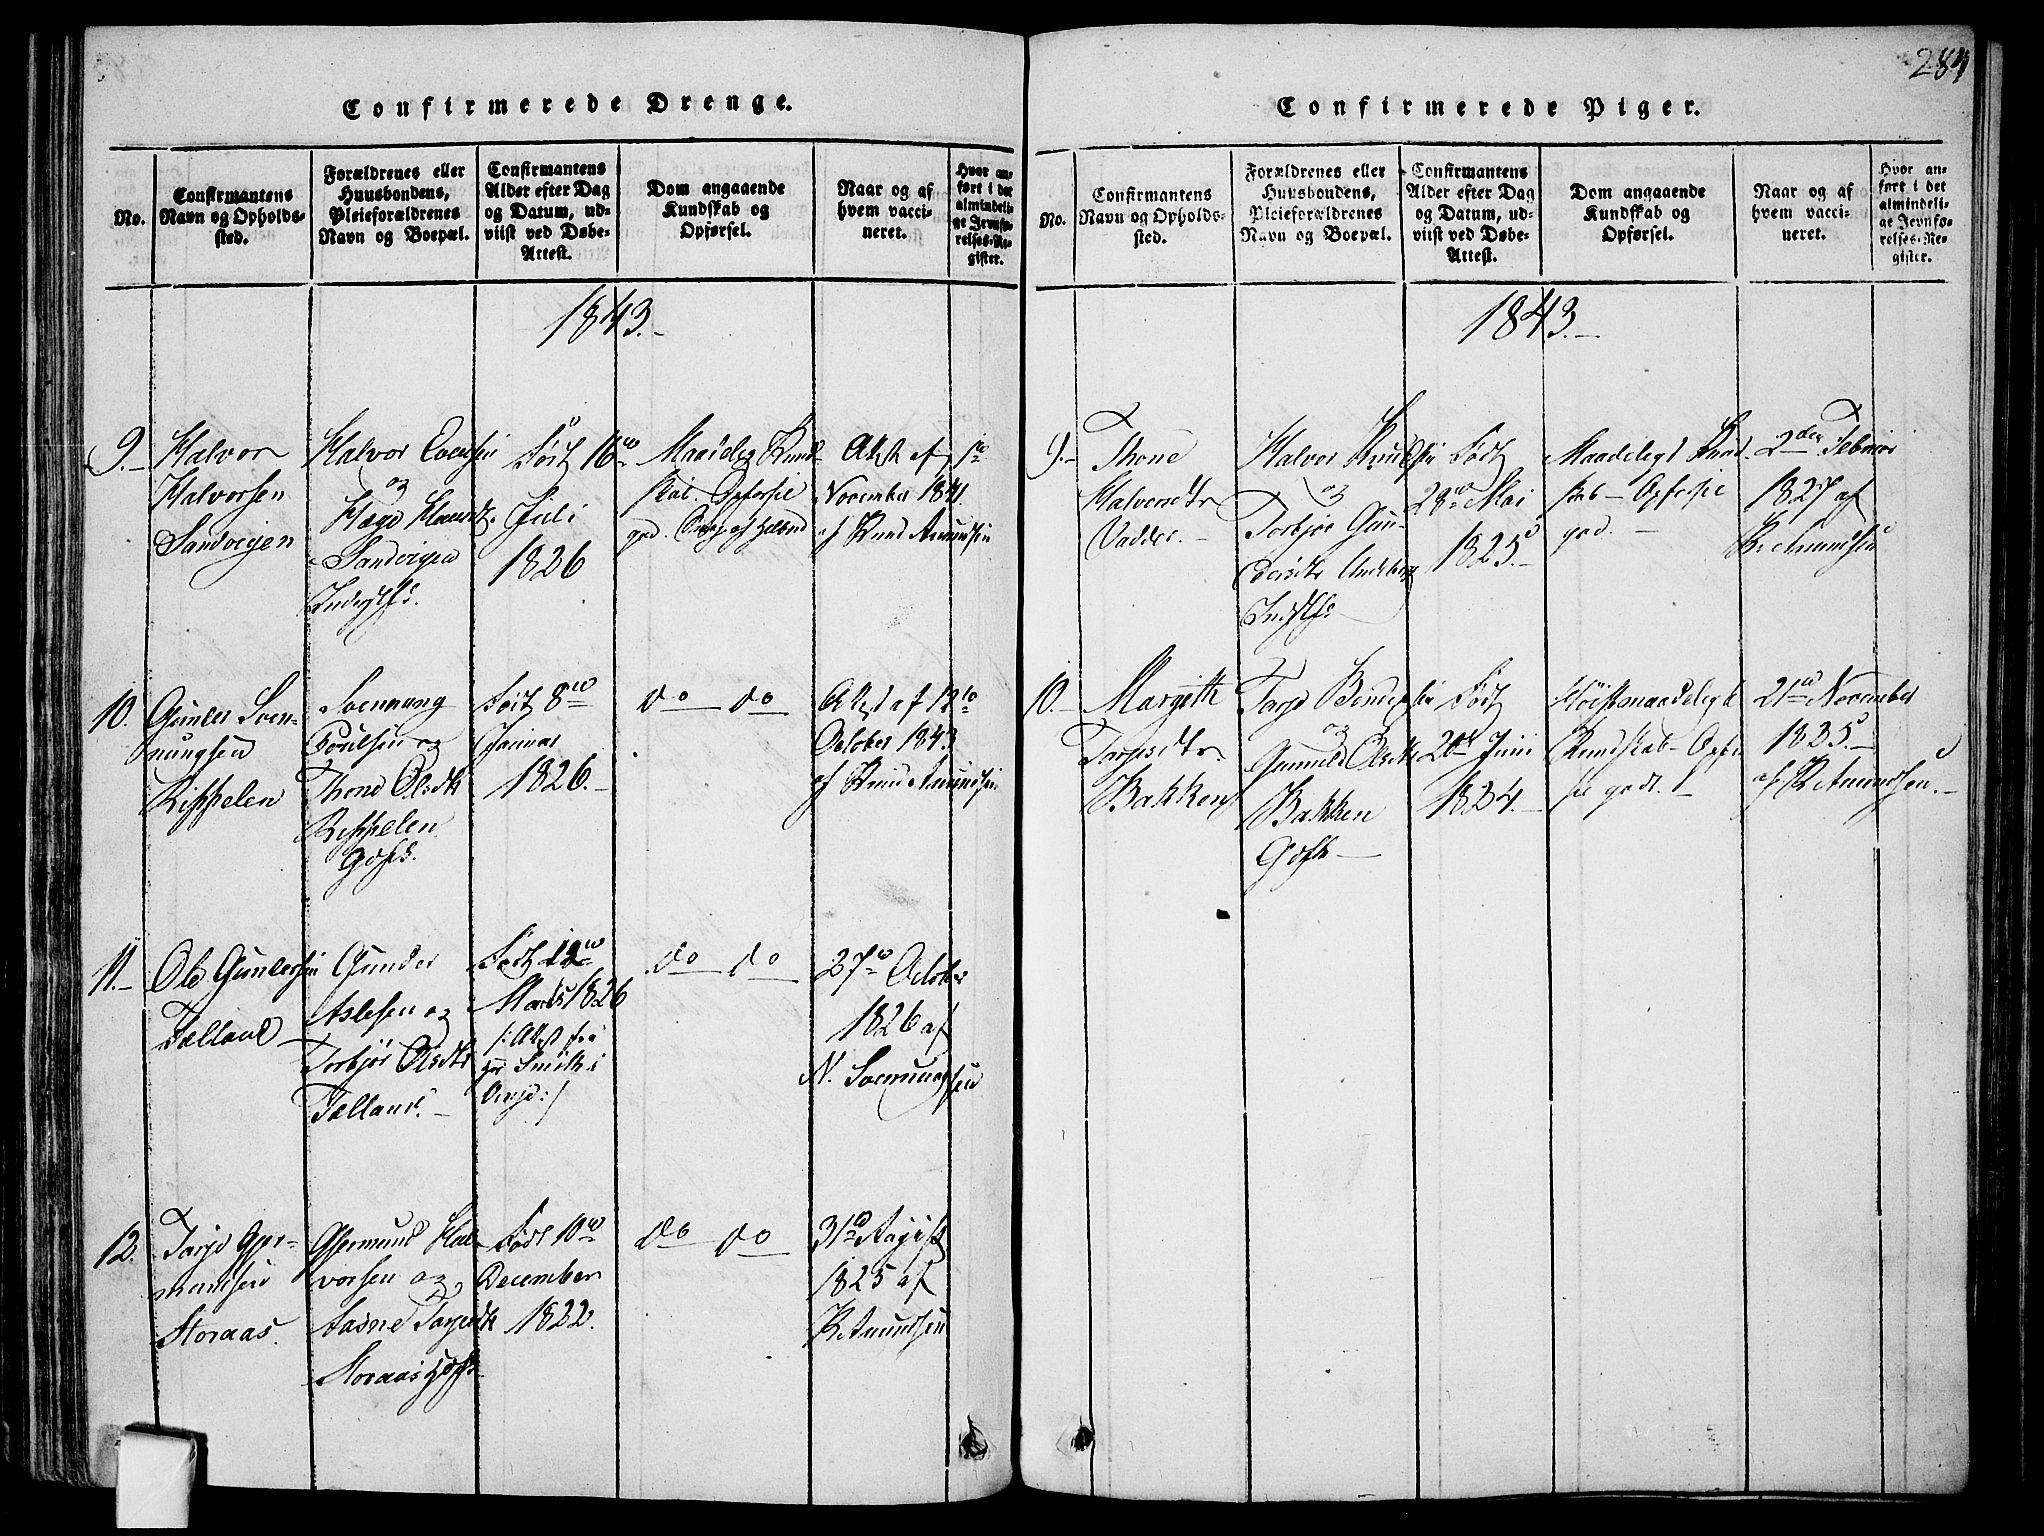 284
Confirmerede Drenge.
No.
Confirmantens
Navn og Opholds-
sted.
Forældrenes eller
Huusbondens,
Pleieforældrenes
Navn og Boepæl.
Confirmantens
Alder efter Dag
og Datum, ud-
viist ved Døbe-
Attest.
Dom angaaende
Kundskab og
Opførsel.
Naar og af
hvem vacci-
neret.
Hvor an-
ført i det
almindeli-
ge Jevnfø-
relses-Re-
gister.
1843.-
9.-
Halvor
Halvorsen
Sandvigen
Halvor Evensen
og
Sandvigen
Født 16de
Juli
1826
Maadelig Kund-
skab. Opførsel
god.
Attest af 1ste
November 1841
af Knud Amundsen
10.
Gunder Sven-
nungsen
Rippelen
Svennung
Poulsen og
Thone Olsdtr
Rippelen
Godfs.
Født 8de
Januar
1826.-
do do
Attest af 12te
October 1843
af Knud Amundsen
11.-
Ole Gundersen
Tælland
Gunder
Aslesen og
Torbjør Olsdtr
Tælland.-
Født 12te
Marts 1826
/: Attest fra
Hr Smith i
do do
27de October
1826 af
N. Svennungsen
12.
Tarje Gjer-
mundsen
Storaas.
Gjermund Hal-
vorsen og
Aasne Tarjesdtr
Storaas
Født 10de
December
1822.
do do
31te August
1825 af
K Amundsen
Confirmerede Piger.
No.
Confirmantens
Navn og Opholds-
sted.
Forældrenes eller
Huusbondens,
Pleieforældrenes
Navn og Boepæl.
Confirmantens
Alder efter Dag
og Datum, ud-
viist ved Døbe-
Attest.
Dom angaaende
Kundskab og
Opførsel.
Naar og af
hvem vacci-
neret.
Hvor an-
ført i det
almindeli-
ge Jevnfø-
relses-Re-
gister.
1843.-
9.-
Thone
Halvorsdtr
Vadder.-
Halvor Knudsen
og
Torbjør Gun-
dersdtr
Født
28de Mai
1825.-
Maadeligt Kund-
skab - Opførsel
god.-
2den Februar
1827 af
K Amundsen
10.-
Margith
Tarjesdtr
Bakken
Tarje Bendixsen
og
Gunuld Olsdtr
Bakken
Godfs-
Født
20de Juni
1824.-
Høistmaadeligt
Kundskab - Opfør-
sel godt.
21de November
1835.-
af K Amundsen.-